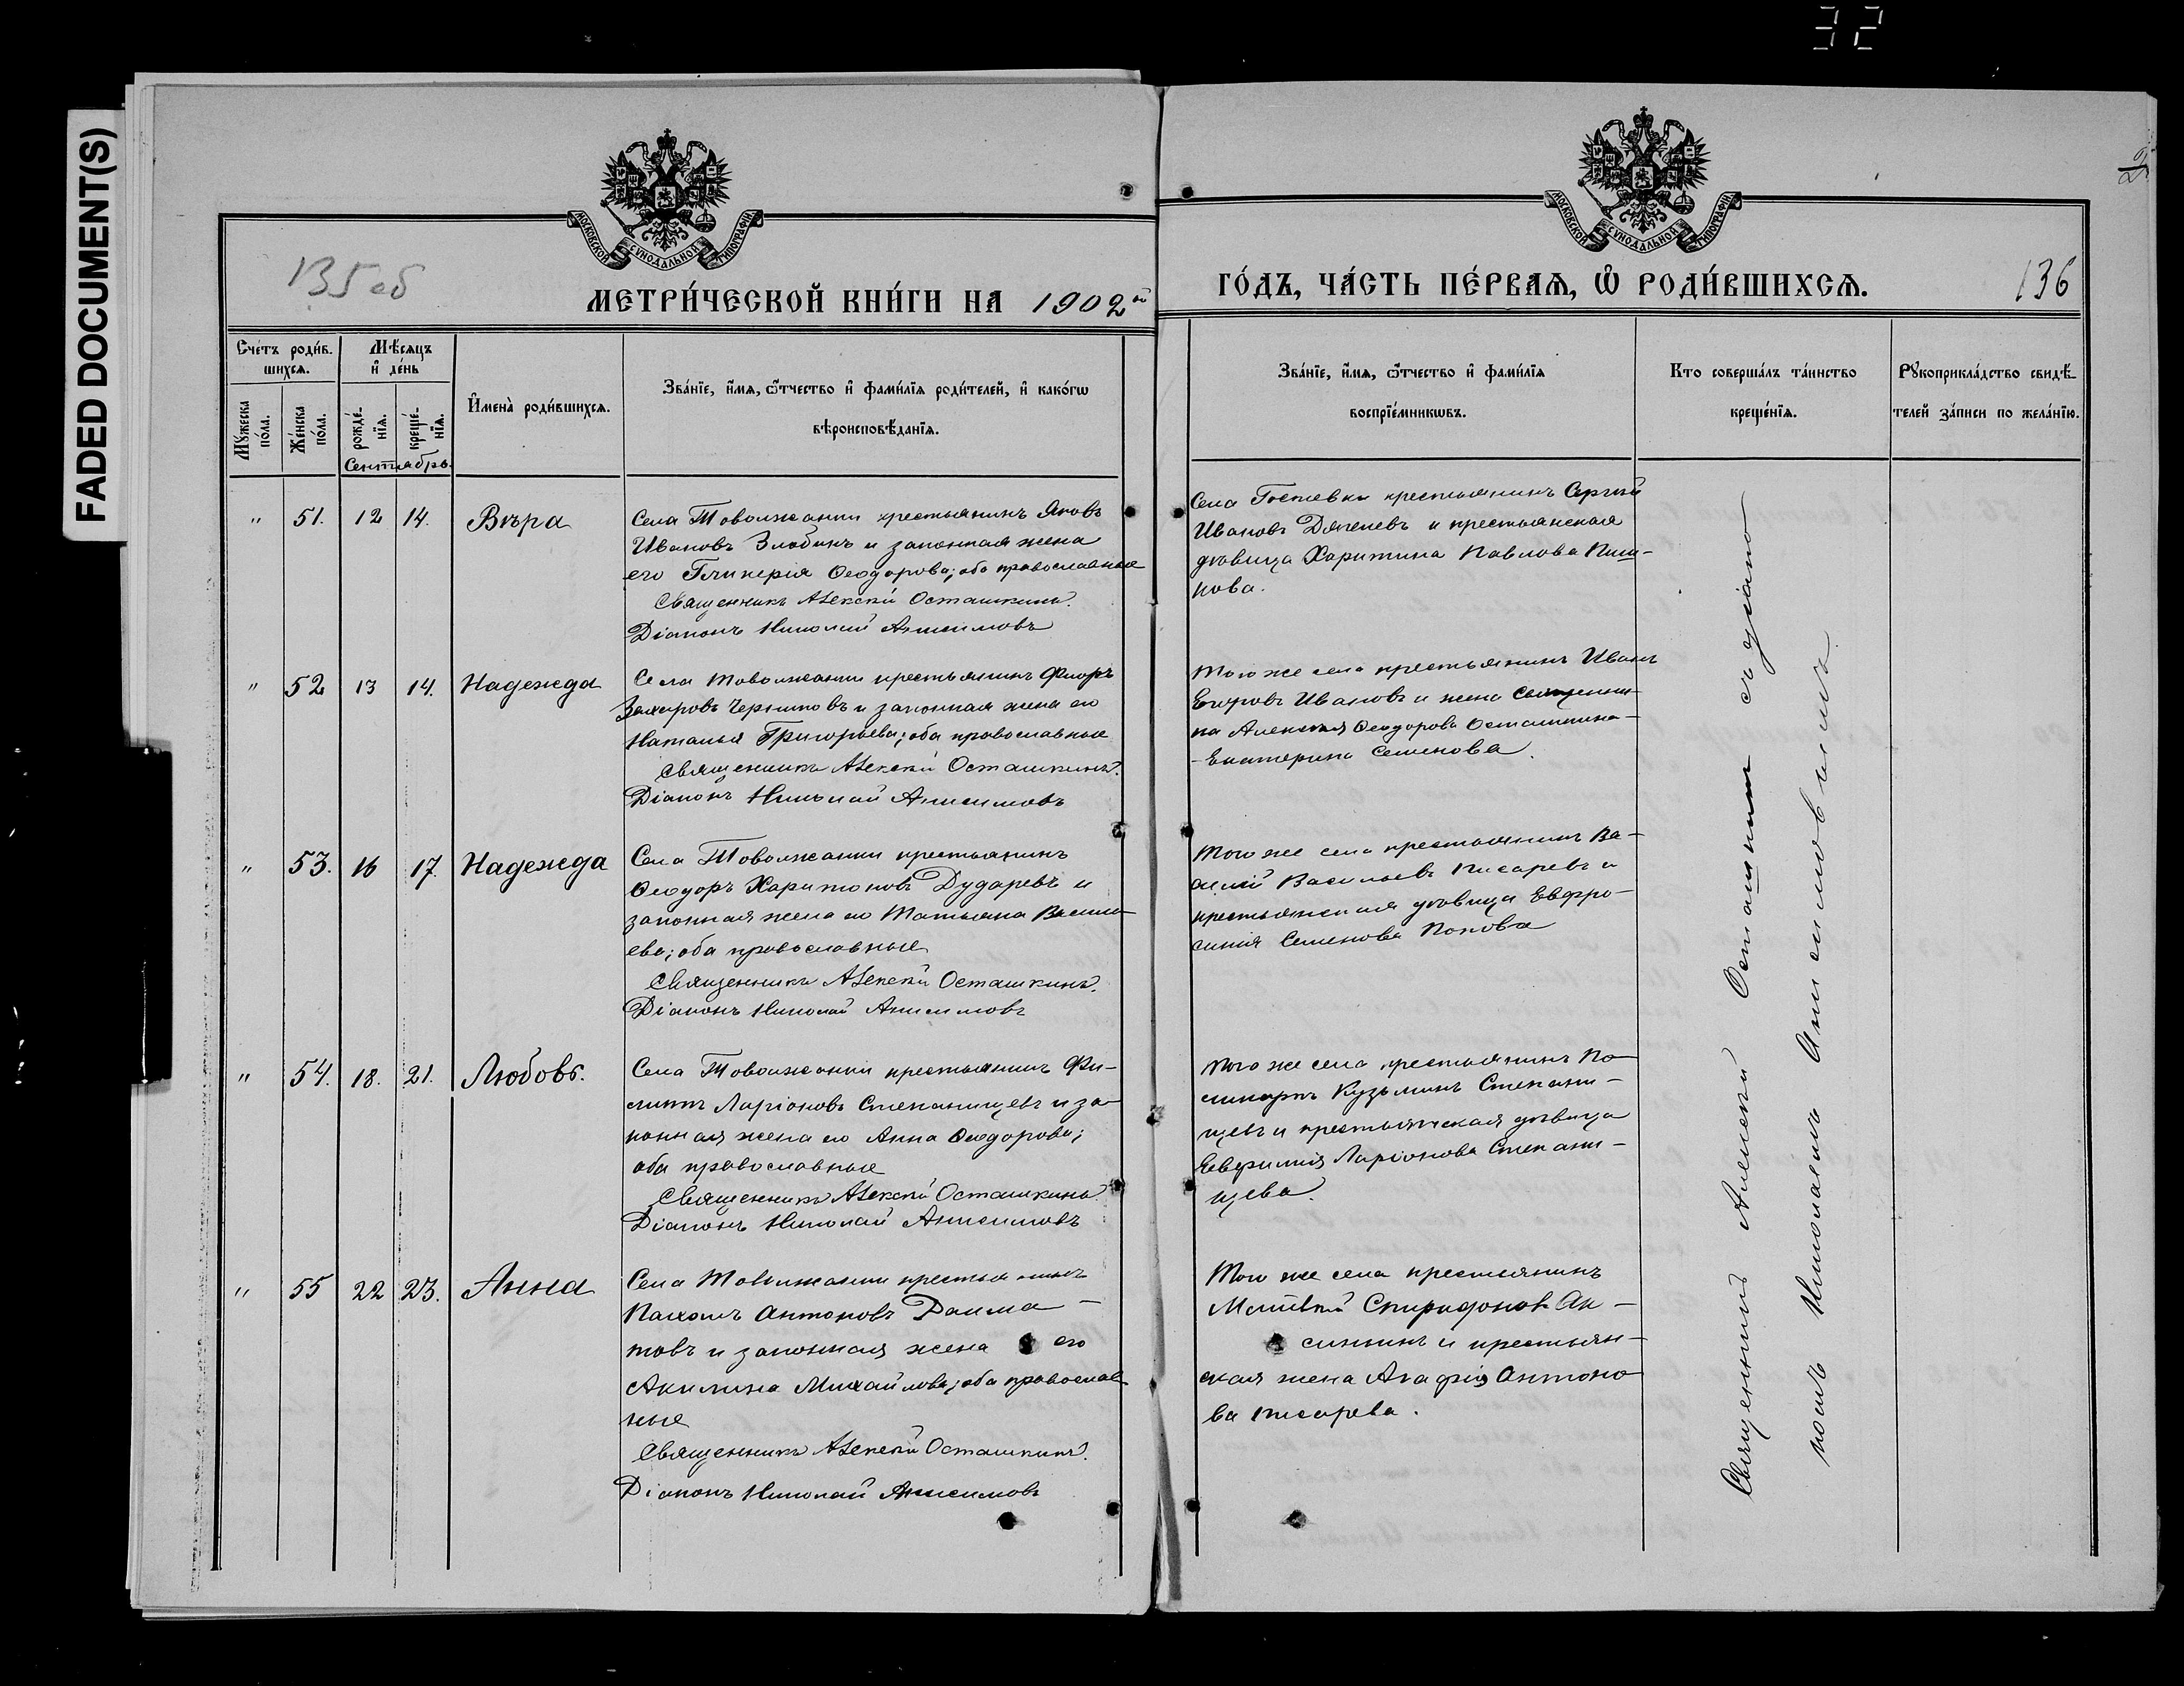 32
FADED DOCUMENT(S)
МОСКОВСКОЙ СѴНОДАЛЬНОЙ ТИПОГРАФІИ
МОСКОВСКОЙ СѴНОДАЛЬНОЙ ТИПОГРАФІИ
135 об
136
МЕТРИ́ЧЕСКОЙ КНИ́ГИ НА 1902й
ГО́ДЪ, ЧА́СТЬ ПЕ́РВАѦ, Ѡ҆ РОДИ́ВШИХСѦ.
Сче́тъ роди́в-
шихсѧ.
Мѣ́сяцъ
и҆ де́нь
Мꙋ́жеска по́ла.
Же́нска по́ла.
рожде́-
нїѧ.
креще́-
нїѧ.
Сентябрь.
И҆мена̀ роди́вшихсѧ.
Зва́нїе, и҆́мѧ, ѻ҆́тчество и҆ фами́лїѧ роди́телей, и҆ како́гѡ
вѣроисповѣ́данїѧ.
Зва́нїе, и҆́мѧ, ѻ҆́тчество и҆ фами́лїѧ
воспрїе́мникѡвъ.
Кто соверша́лъ та́инство
креще́нїѧ.
Рꙋкоприкла́дство свидѣ́-
телей за́писи по жела́нїю.
" 51. 12 14. Вѣра
Села Товолжанки крестьянинъ Яковъ
Ивановъ Злобинъ и законная жена
его Гликерія Ѳеодорова; оба православные
Священникъ Алексѣй Осташкинъ.
Діаконъ Николай Анисимовъ
Села Гостевки крестьянинъ Сергѣй
Ивановъ и крестьянская
дѣвица Харитина Павлова
кова.
" 52 13 14. Надежда
Села Товолжанки крестьянинъ Флоръ
Захаровъ и законная жена его
Наталья Григорьева; оба православные
Священникъ Алексѣй Осташкинъ.
Діаконъ Николай Анисимовъ
Того же села крестьянинъ Иванъ
Егоровъ Ивановъ и жена священни-
ка Алексѣя Ѳеодорова Осташкина -
- Екатерина Семенова.
" 53. 16 17. Надежда
Села Товолжанки крестьянинъ
Ѳеодоръ Харитоновъ Дударевъ и
законная жена его Татьяна Василь-
ева; оба православные
Священникъ Алексѣй Осташкинъ.
Діаконъ Николай Анисимовъ
Того же села крестьянинъ Ва-
силій Васильевъ Писаревъ и
крестьянская дѣвица Евфро-
синія Семенова Попова
" 54. 18. 21. Любовь.
Села Товолжанки крестьянинъ Фи-
липпъ Ларіоновъ Степанищевъ и за-
конная жена его Анна Ѳеодорова;
оба православные
Священникъ Алексѣй Осташкинъ
Діаконъ Николай Анисимовъ
Того же села крестьянинъ По-
ликарпъ Кузьминъ Степани-
щевъ и крестьянская дѣвица
Евфимія Ларіонова Степани-
щева.
" 55 22 23. Анна
Села Товолжанки крестьянинъ
Пахомъ Антоновъ Долма-
товъ и законная жена его
Акилина Михайлова; оба православ-
ные
Священникъ Алексѣй Осташкинъ.
Діаконъ Николай Анисимовъ
Того же села крестьянинъ
Матвѣй Спиридоновъ Ак-
синьинъ и крестьян-
ская жена Агафія Антоно-
ва Писарева.
Священникъ Алексѣй Осташкинъ съ діако-
номъ Николаемъ Анисимовымъ.